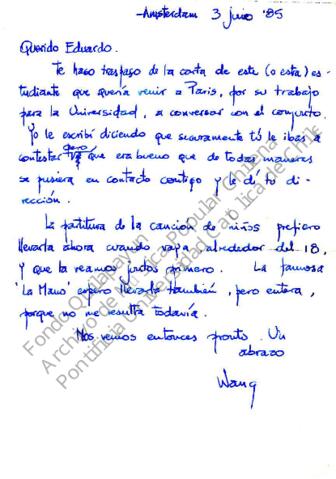 -Amsterdam 3 junio '85
Querido Eduardo.
Te hago traspaso de la carta de este (o esta) es-
tudiante que quería venir a París, por su trabajo
para la Universidad, a conversar con el conjunto.
Yo le escribí diciendo que seguramente tú le ibas a
contestar pero que era bueno que de todas maneres
se pusiera en contacto contigo y le dí tu di-
rección.
La partitura de la canción de niños prefiero
llevarla ahora cuando vaya alrededor del 18,
y que la veamos juntos primero. La famosa
'La Mano' espero llevarla también, pero entera,
porque no me resulta todavía.
Nos vemos entonces pronto. Un
abrazo
Wang
Fondo Quilapayún
Archivo de Música Popular Chilena
Pontificia Universidad Católica de Chile